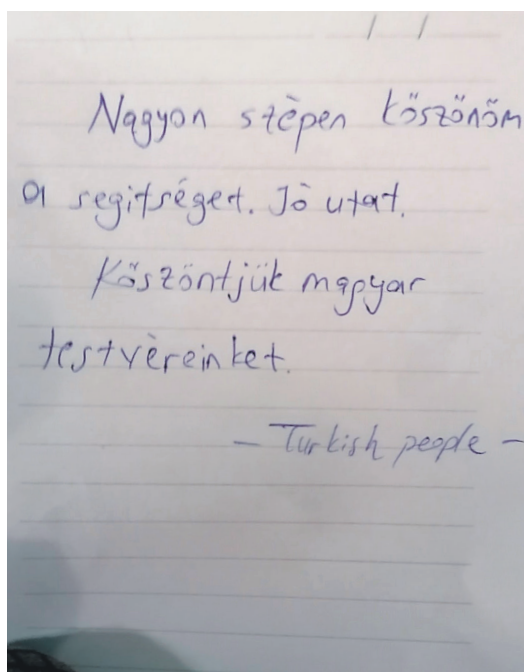 Nagyon stèpen kőszőnőm
a segitséget. Jò utat.
Kőszőntjük magyar
testvèreinket.
- Turkish people -